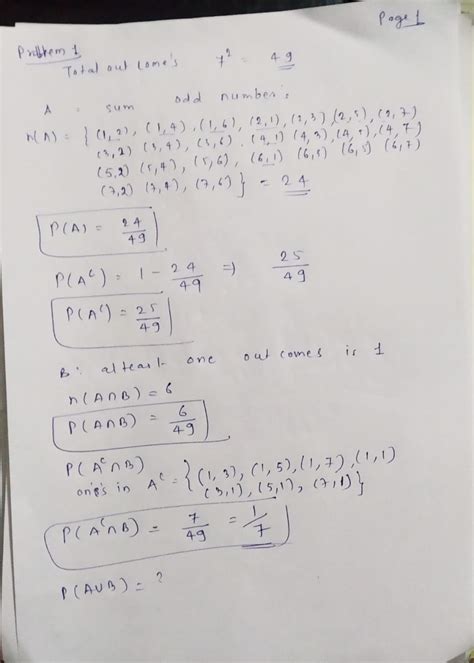 Page 1
Problem 1
Total out come's 7² = 49
A : sum odd number's
n(A) = { (1,2), (1,4), (1,6), (2,1), (2,3), (2,5), (2,7)
(3,2) (3,4), (3,6), (4,1) (4,3), (4,5), (4,7)
(5,2) (5,4), (5,6), (6,1) (6,3) (6,5) (6,7)
(7,2) (7,4), (7,6) } = 24
P(A) = 24/49
P(Aᶜ) = 1 - 24/49 ⇒ 25/49
P(Aᶜ) = 25/49
B: atleast one out comes is 1
n(A∩B) = 6
P(A∩B) = 6/49
P(Aᶜ∩B)
one's in Aᶜ = { (1,3), (1,5), (1,7), (1,1)
(3,1), (5,1), (7,1) }
P(Aᶜ∩B) = 7/49 = 1/7
P(A∪B) = ?